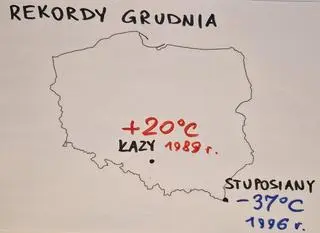 REKORDY GRUDNIA
+20°C
ŁAZY 1989 r.
STUPOSIANY
-37°C
1996 r.